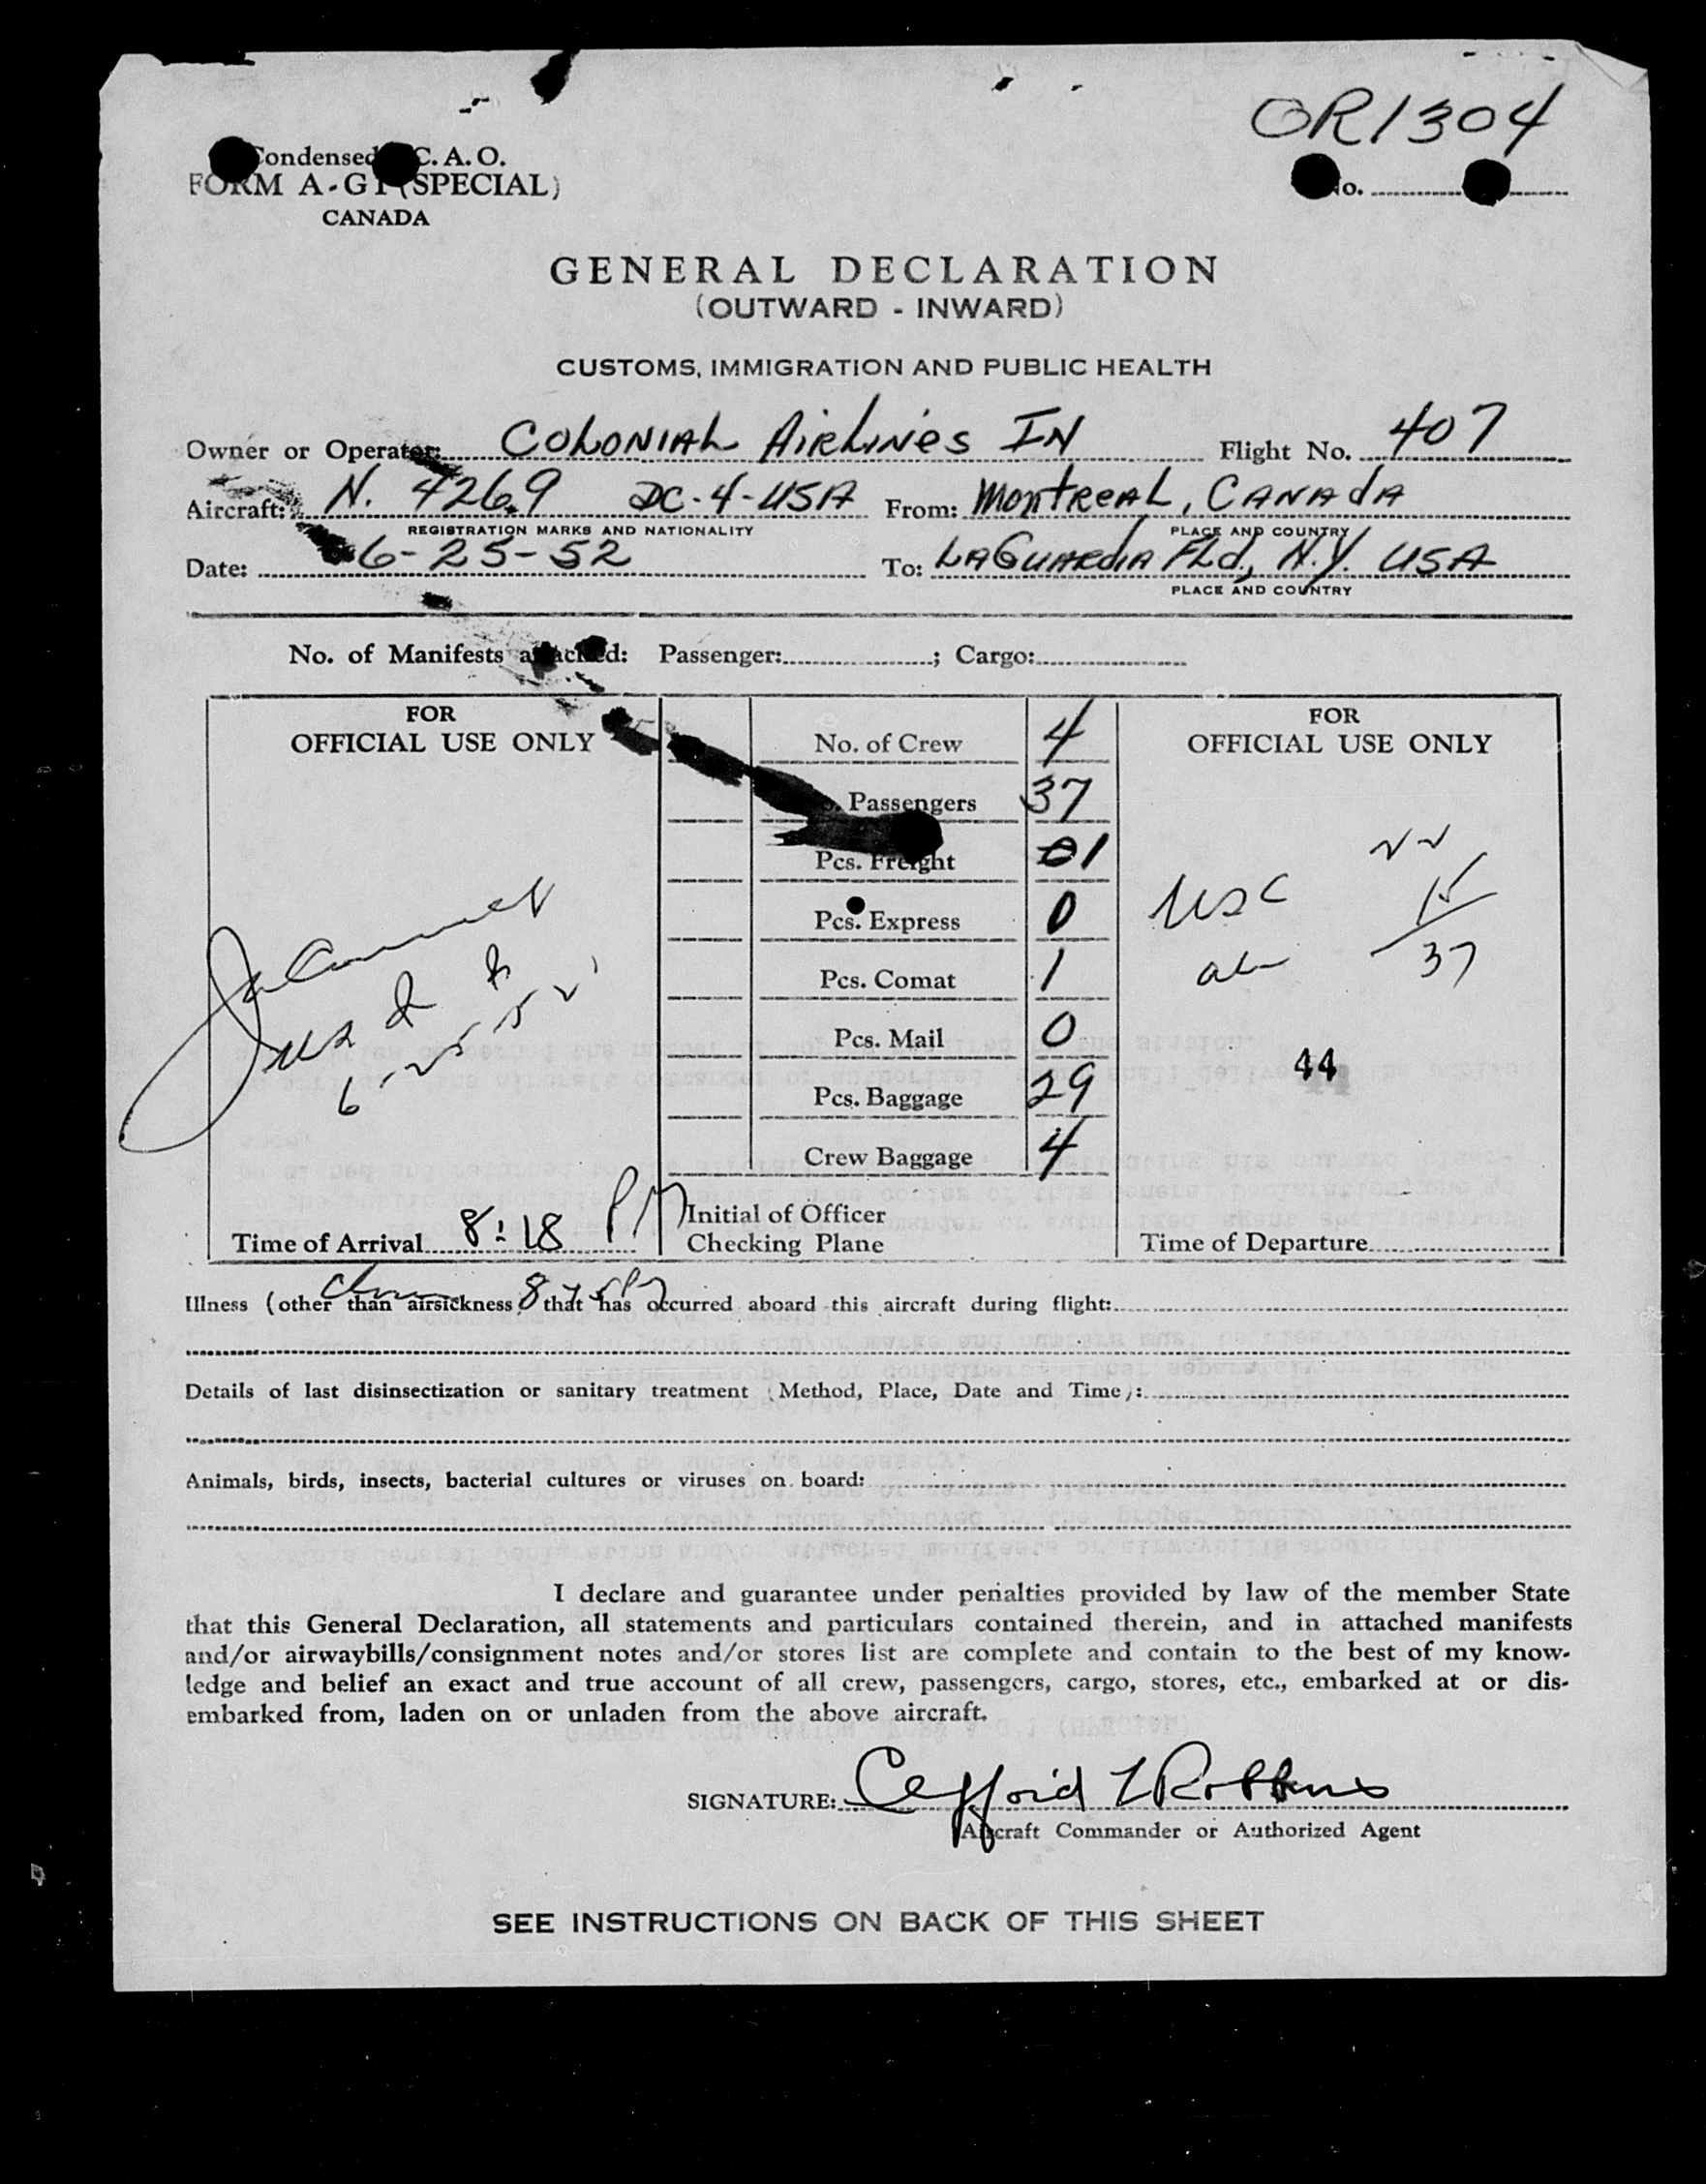 OR1304
Condensed C. A. O.
FORM A-G1 (SPECIAL)
CANADA
No.
GENERAL DECLARATION
(OUTWARD - INWARD)
CUSTOMS, IMMIGRATION AND PUBLIC HEALTH
Owner or Operator: COLONIAL AIRLINES IN Flight No. 407
Aircraft: N. 4269 DC-4-USA From: MONTREAL, CANADA
REGISTRATION MARKS AND NATIONALITY PLACE AND COUNTRY
Date: 6-25-52 To: LAGUARDIA FLd, N.Y. USA
PLACE AND COUNTRY
No. of Manifests attached: Passenger: ; Cargo:
FOR
OFFICIAL USE ONLY
6-25-52
Time of Arrival 8:18 PM
No. of Crew 4
Passengers 37
Pcs. Freight 01
Pcs. Express 0
Pcs. Comat 1
Pcs. Mail 0
Pcs. Baggage 29
Crew Baggage 4
Initial of Officer
Checking Plane
FOR
OFFICIAL USE ONLY
22
USC 15
37
44
Time of Departure
Illness (other than airsickness) that has occurred aboard this aircraft during flight:
Details of last disinsectization or sanitary treatment (Method, Place, Date and Time):
Animals, birds, insects, bacterial cultures or viruses on board:
I declare and guarantee under penalties provided by law of the member State
that this General Declaration, all statements and particulars contained therein, and in attached manifests
and/or airwaybills/consignment notes and/or stores list are complete and contain to the best of my know-
ledge and belief an exact and true account of all crew, passengers, cargo, stores, etc., embarked at or dis-
embarked from, laden on or unladen from the above aircraft.
SIGNATURE: Clifford L Robbins
Aircraft Commander or Authorized Agent
SEE INSTRUCTIONS ON BACK OF THIS SHEET